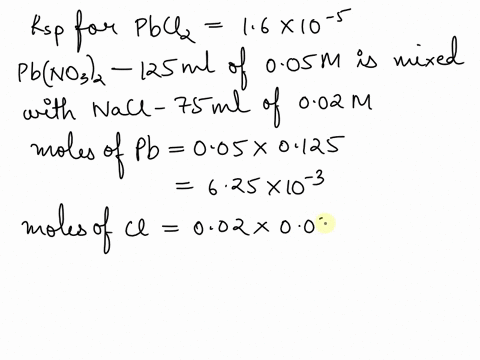 Ksp for PbCl₂ = 1.6 × 10⁻⁵
Pb(NO₃)₂ – 125 ml of 0.05 M is mixed
with NaCl – 75 ml of 0.02 M
moles of Pb = 0.05 × 0.125
= 6.25 × 10⁻³
moles of Cl = 0.02 × 0.0